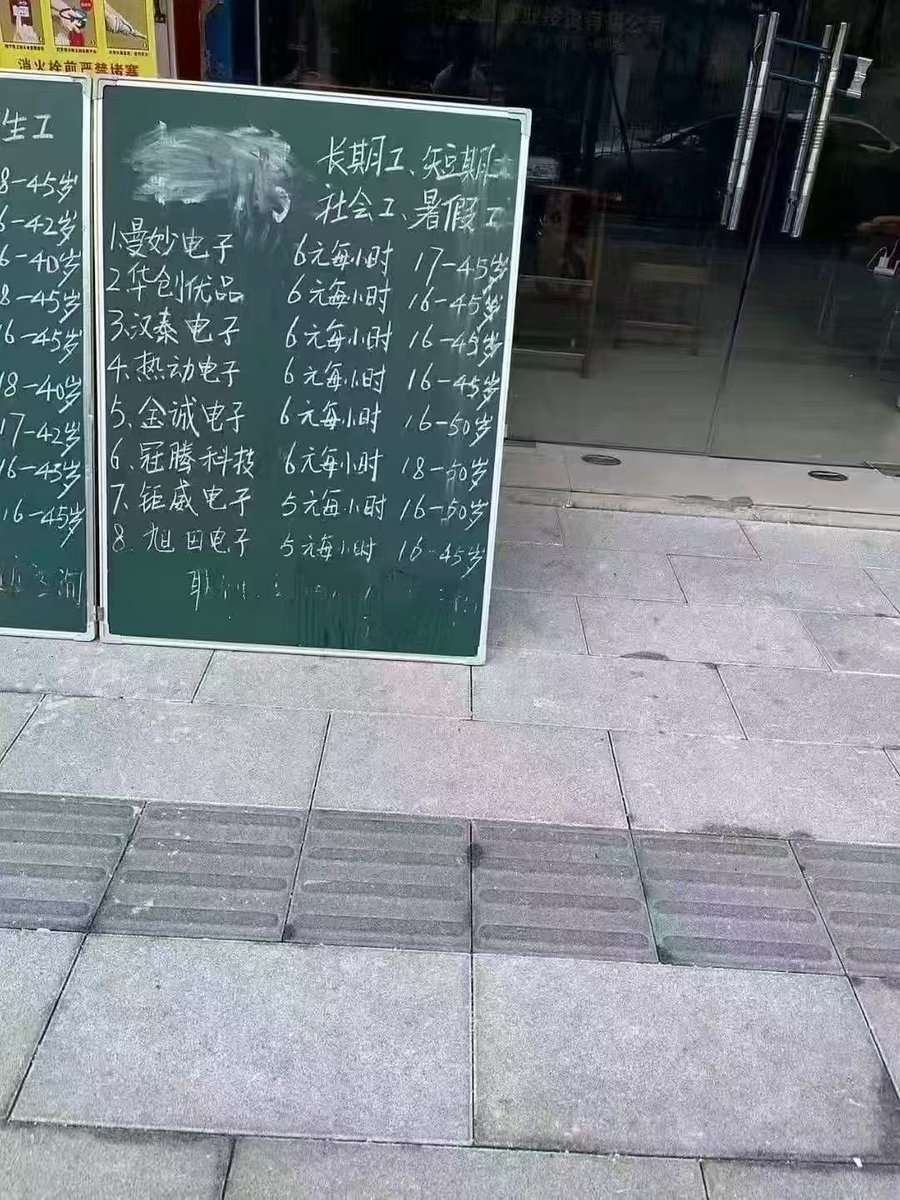 消火栓前严禁堵塞
生工
8-45岁
6-42岁
6-40岁
8-45岁
16-45岁
18-40岁
17-42岁
16-45岁
16-45岁
长期工、短期工
社会工、暑假工
1.曼妙电子 6元每小时 17-45岁
2.华创优品 6元每小时 16-45岁
3.汉泰电子 6元每小时 16-45岁
4.热动电子 6元每小时 16-45岁
5.金诚电子 6元每小时 16-50岁
6.冠腾科技 6元每小时 18-50岁
7.钜威电子 5元每小时 16-50岁
8.旭田电子 5元每小时 16-45岁